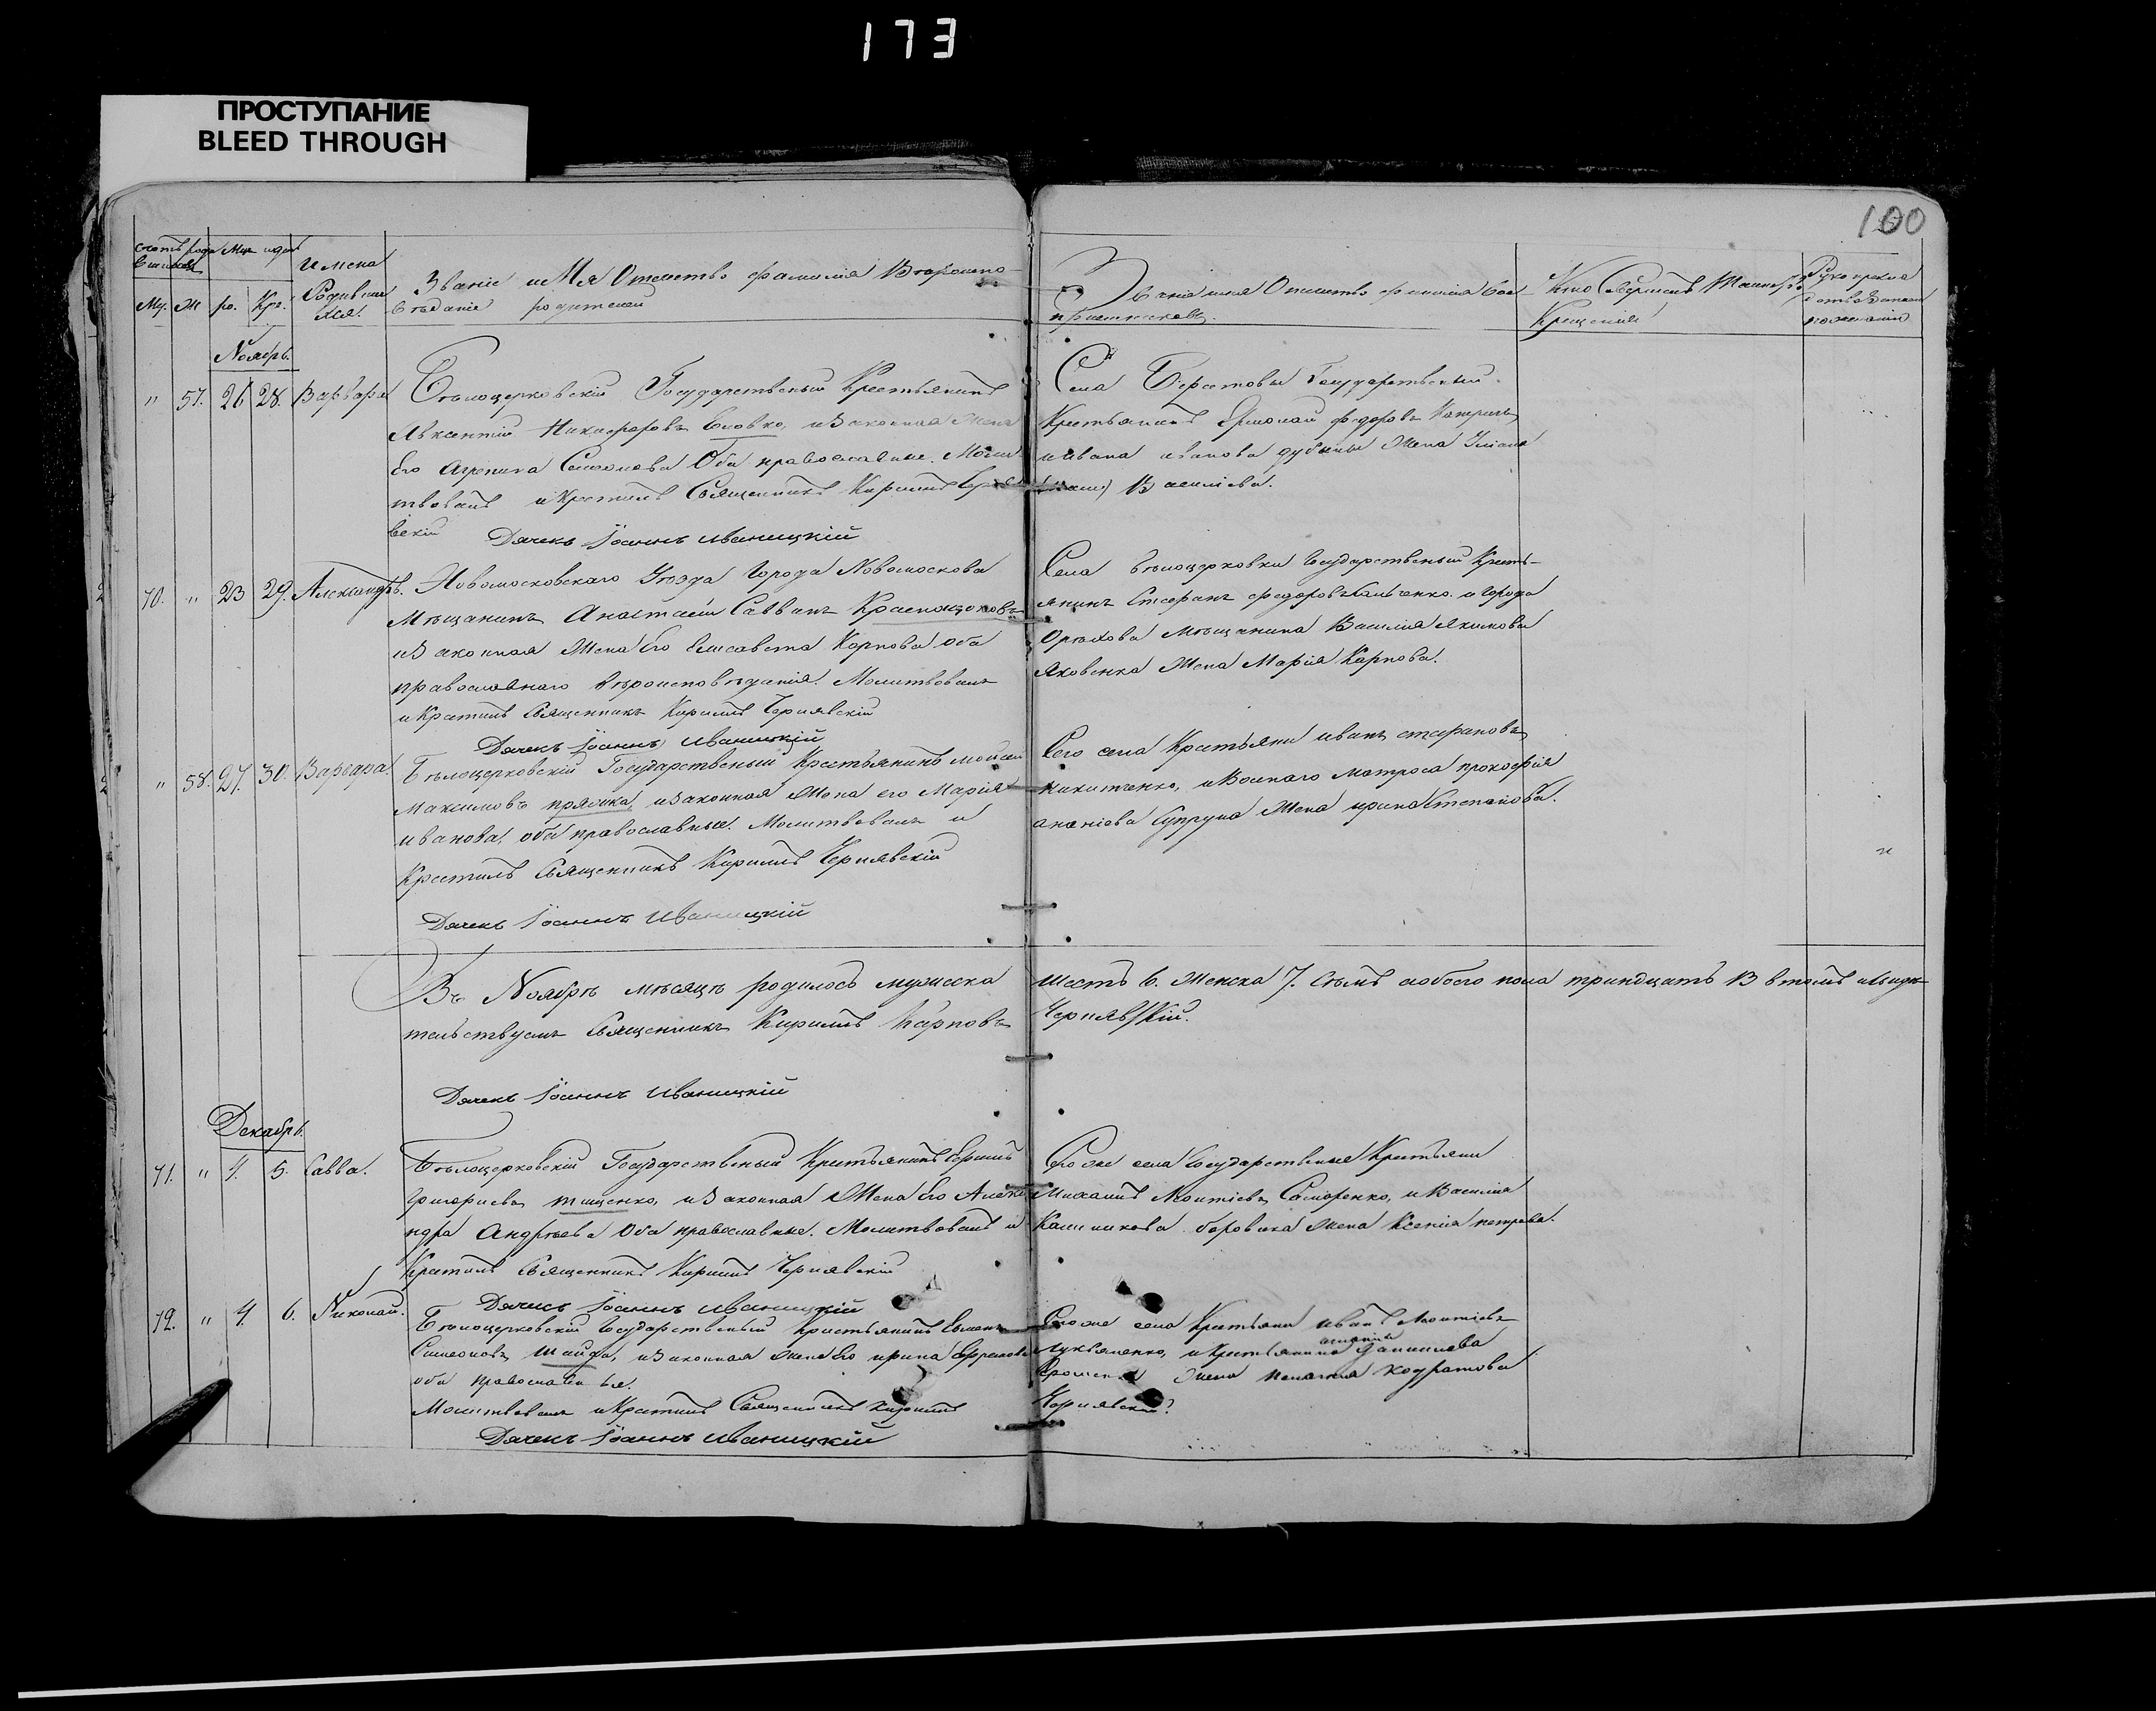 173
ПРОСТУПАНИЕ
BLEED THROUGH
100
Счетъ родив Мц. и день
Имена Родившихся.
Званіе имя Отчество фамилія Вѣроиспо-
вѣданіе родителей
Му. Ж ро. Кре.
Званія имя Отчество фамилія Вос-
пріемниковъ.
Кто Совершалъ Таинство
Крещенія
Ноябрь.
" 57. 26 28. Варвара
Бѣлоцерковскій Государственый Крестьянинъ
Авксентій Никифоровъ Словко, изаконная Жена
Его Агрепина Симеонова Оба православные. Молит
твовалъ и Крестилъ Священникъ Кирилъ Черня
вскій
Дячекъ Іоаннъ Иваницкій
Села Берестовы Государственый
Крестьянинъ Ярмолай федоровъ
и Ивана иванова дубины Жена Уліана
Василіева.
70. " 23 29. Александръ.
Новомосковскаго Уѣзда Города Новомоскова
Мѣщанинъ Анастасій Саввинъ Краснощоковъ
изаконная Жена Его Елисавета Карпова оба
православнаго вѣроисповѣданія. Молитвовалъ
и Крестилъ Священникъ Кирилъ Чернявскій
Дячекъ Іоаннъ Иваницкій
Села бѣлоцерковки Государственый Кресть-
янинъ Стефанъ федоровъ и Города
Орѣхова Мѣщанина Василія Якимова
Яковенка Жена Марія Карпова.
" 58. 27. 30. Варвара.
Бѣлоцерковскій Государственый Крестьянинъ Мойсей
Максимовъ пряжка, изаконная Жена его Марія
иванова, оба православные. Молитвовалъ и
Крестилъ Священникъ Кирилъ Чернявскій
Дячекъ Іоаннъ Иваницкій
Сего села Крестьяни иванъ стефановъ
никитченко, и Военаго матроса прокофія
ананіева Супруна Жена ирина Степанова.
Въ Ноябрѣ мѣсяцѣ родилось мужеска
шесть 6. Женска 7. Сѣмъ иобоего пола тринадцать В втомъ исвидѣ-
тельствуемъ Священникъ Кирилъ Карповъ
Чернявскій.
Дячекъ Іоаннъ Иваницкій
Декабрь.
71. " 4. 5. Савва.
Бѣлоцерковскій Государственый Крестьянинъ
Григориевъ тищенко, изаконная Жена Его Алекса
ндра Андрѣева Оба православные. Молитвовалъ и
Крестилъ Священникъ Кирилъ Чернявскій
Дячекъ Іоаннъ Иваницкій
Сего же села Государственые Крестьяни
Михаилъ Леонтіевъ Саморенко, и Василія
боровика жена Ксенія петрова.
72. " 4. 6. Николай.
Бѣлоцерковскій Государственый Крестьянинъ
Симеоновъ шайда, изаконная жена Его ирина Ефремова
оба православные.
Молитвовалъ и Крестилъ Священникъ Кирилъ
Чернявскій
Дячекъ Іоаннъ Иваницкій
Сего же села Крестьяни Иванъ Леонтіевъ
Лукьяненко, и Крестьянина Данилова
Жена пелагия кодратова